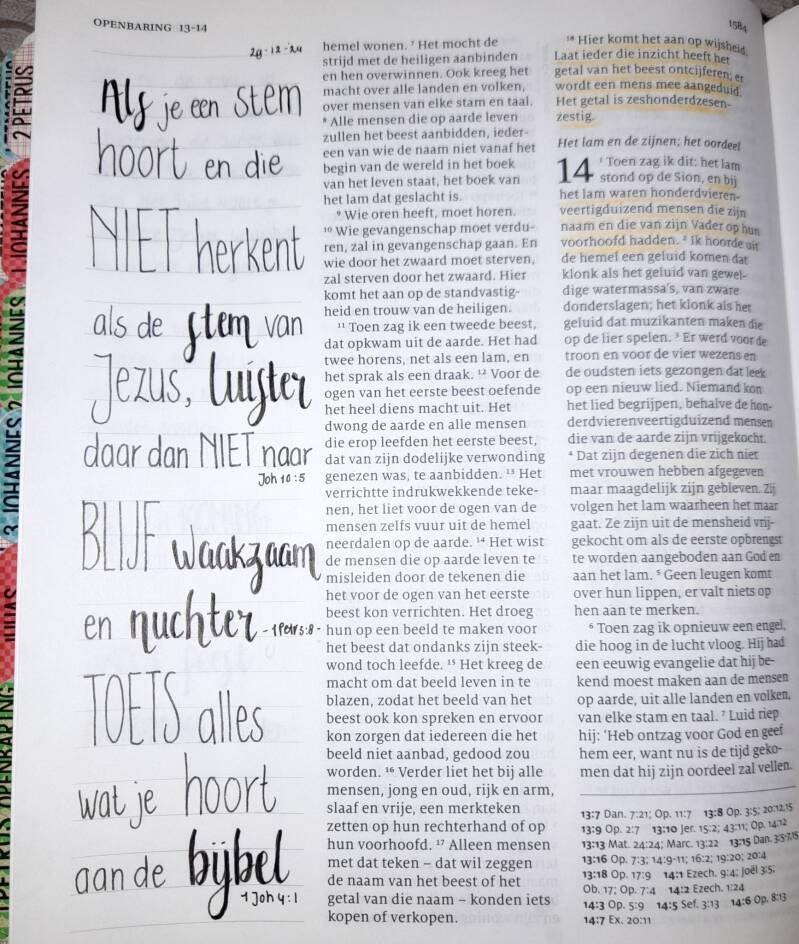 OPENBARING 13-14
1584
29-12-'24
Als je een stem
hoort en die
NIET herkent
als de stem van
Jezus, luister
daar dan NIET naar
Joh 10:5
BLIJF waakzaam
en nuchter - 1 Petr 5:8 -
TOETS alles
wat je hoort
aan de bijbel
1 Joh 4:1
hemel wonen. 7 Het mocht de
strijd met de heiligen aanbinden
en hen overwinnen. Ook kreeg het
macht over alle landen en volken,
over mensen van elke stam en taal.
8 Alle mensen die op aarde leven
zullen het beest aanbidden, ieder-
een van wie de naam niet vanaf het
begin van de wereld in het boek
van het leven staat, het boek van
het lam dat geslacht is.
9 Wie oren heeft, moet horen.
10 Wie gevangenschap moet verdu-
ren, zal in gevangenschap gaan. En
wie door het zwaard moet sterven,
zal sterven door het zwaard. Hier
komt het aan op de standvastig-
heid en trouw van de heiligen.
11 Toen zag ik een tweede beest,
dat opkwam uit de aarde. Het had
twee horens, net als een lam, en
het sprak als een draak. 12 Voor de
ogen van het eerste beest oefende
het heel diens macht uit. Het
dwong de aarde en alle mensen
die erop leefden het eerste beest,
dat van zijn dodelijke verwonding
genezen was, te aanbidden. 13 Het
verrichtte indrukwekkende teke-
nen, het liet voor de ogen van de
mensen zelfs vuur uit de hemel
neerdalen op de aarde. 14 Het wist
de mensen die op aarde leven te
misleiden door de tekenen die
het voor de ogen van het eerste
beest kon verrichten. Het droeg
hun op een beeld te maken voor
het beest dat ondanks zijn steek-
wond toch leefde. 15 Het kreeg de
macht om dat beeld leven in te
blazen, zodat het beeld van het
beest ook kon spreken en ervoor
kon zorgen dat iedereen die het
beeld niet aanbad, gedood zou
worden. 16 Verder liet het bij alle
mensen, jong en oud, rijk en arm,
slaaf en vrije, een merkteken
zetten op hun rechterhand of op
hun voorhoofd. 17 Alleen mensen
met dat teken – dat wil zeggen
de naam van het beest of het
getal van die naam – konden iets
kopen of verkopen.
18 Hier komt het aan op wijsheid.
Laat ieder die inzicht heeft het
getal van het beest ontcijferen; er
wordt een mens mee aangeduid.
Het getal is zeshonderdzesen-
zestig.
Het lam en de zijnen; het oordeel
14 1 Toen zag ik dit: het lam
stond op de Sion, en bij
het lam waren honderdvieren-
veertigduizend mensen die zijn
naam en die van zijn Vader op hun
voorhoofd hadden. 2 Ik hoorde uit
de hemel een geluid komen dat
klonk als het geluid van gewel-
dige watermassa's, van zware
donderslagen; het klonk als het
geluid dat muzikanten maken die
op de lier spelen. 3 Er werd voor de
troon en voor de vier wezens en
de oudsten iets gezongen dat leek
op een nieuw lied. Niemand kon
het lied begrijpen, behalve de hon-
derdvierenveertigduizend mensen
die van de aarde zijn vrijgekocht.
4 Dat zijn degenen die zich niet
met vrouwen hebben afgegeven
maar maagdelijk zijn gebleven. Zij
volgen het lam waarheen het maar
gaat. Ze zijn uit de mensheid vrij-
gekocht om als de eerste opbrengst
te worden aangeboden aan God en
aan het lam. 5 Geen leugen komt
over hun lippen, er valt niets op
hen aan te merken.
6 Toen zag ik opnieuw een engel,
die hoog in de lucht vloog. Hij had
een eeuwig evangelie dat hij be-
kend moest maken aan de mensen
op aarde, uit alle landen en volken,
van elke stam en taal. 7 Luid riep
hij: 'Heb ontzag voor God en geef
hem eer, want nu is de tijd geko-
men dat hij zijn oordeel zal vellen.
13:7 Dan. 7:21; Op. 11:7 13:8 Op. 3:5; 20:12,15
13:9 Op. 2:7 13:10 Jer. 15:2; 43:11; Op. 14:12
13:13 Mat. 24:24; Marc. 13:22 13:15 Dan. 3:5-7,15
13:16 Op. 7:3; 14:9-11; 16:2; 19:20; 20:4
13:18 Op. 17:9 14:1 Ezech. 9:4; Joël 3:5;
Ob. 17; Op. 7:4 14:2 Ezech. 1:24
14:3 Op. 5:9 14:5 Sef. 3:13 14:6 Op. 8:13
14:7 Ex. 20:11
2 PETRUS
1 JOHANNES
2 JOHANNES
3 JOHANNES
JUDAS
OPENBARING